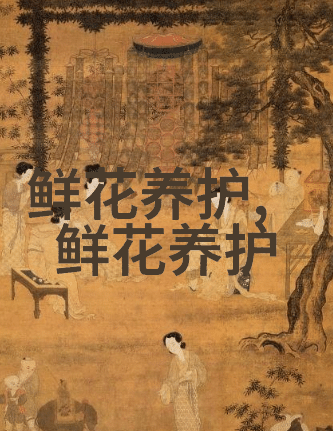 鲜花养护,
鲜花养护